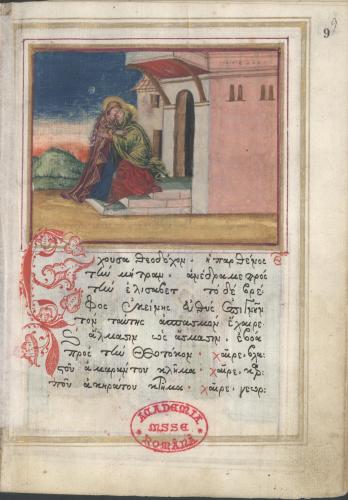 9
Ἔχουσα θεοδόχον · ἡ παρθένος
τὴν μήτραν · ἀνέδραμε πρὸς
τὴν ἐλισάβετ · τὸ δὲ βρέ
φος ἐκείνης εὐθὺς ἐπιγνὸν
τὸν ταύτης ἀσπασμὸν ἔχαιρε ·
ἅλμασιν ὡς ᾄσμασιν · ἐβόα
πρὸς τὴν Θεοτόκον · χαῖρε · βλα
τοῦ ἀμαράντου κλῆμα · χαῖρε · καρ
ποῦ ἀκηράτου κτῆμα · χαῖρε · γεωρ
ACADEMIA
MSSE
ROMÂNĂ